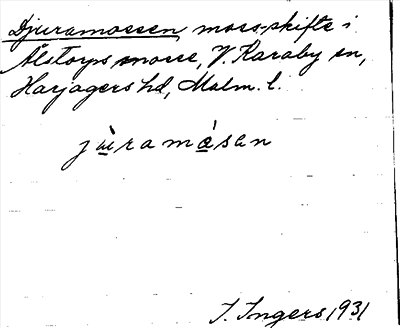 Djuramossen moss-skifte i
Ålstorps mosse, V. Karaby sn,
Harjagers hd, Malm. l.
jùramósen
I. Ingers 1931